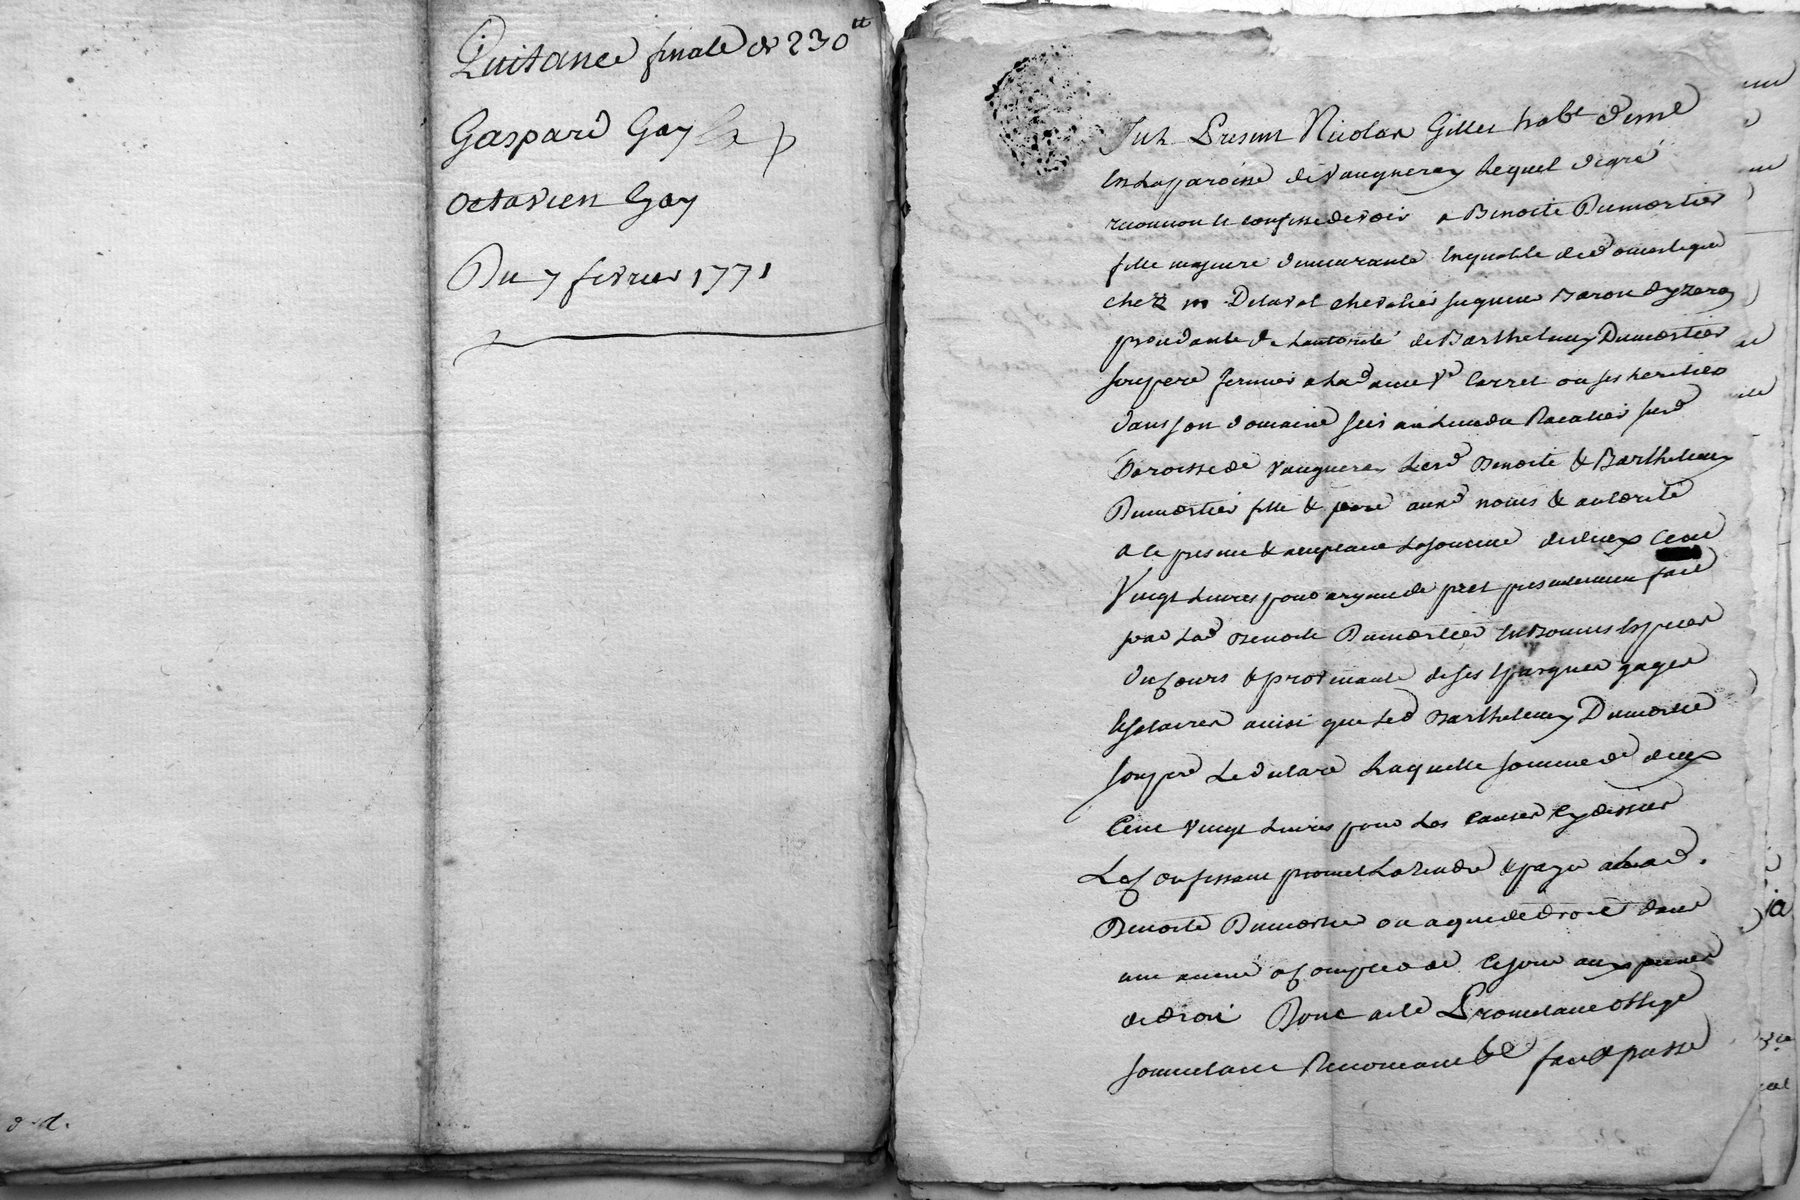 Quitance finale de 230tt
Gaspard Gay
octavien Gay
Du 7 fevrier 1771
d. d.
fut Present Nicolas Gilles habt deme
en La paroisse de vaugneray Lequel degré
reconnoit et confesse devoir a Benoite Dumortier
fille majeure demeurante En qualité de domestique
chez m Delaval chevalier seigneur Baron dyzeron
procedante de Lautorité de Barthelemy Dumortier
son pere fermier a la dame ve Carret ou ses heritiers
dans son domaine scis au Lieu du Recalier sur d
Paroisse de vaugneray Lesd Benoite & Barthelemy
Dumortier fille & pere auxd noms & autorité
a ce present & acceptant La somme de deux Cent
Vingt Livres pour argent de pret presentement fait
par Lad Benoite Dumortier En Bonnes Especes
du Cours & provenante de ses Epargnes gages
& salaires ainsi que Led Barthelemy Dumortier
son pere Le declare Laquelle somme de deux
Cent Vingt Livres pour Les Causes Cy dessus
Le Confessant promet La rendre & payer a Lad.
Benoite Dumortier ou a qui de droit dans
une année a Compter de Ce jour aux peines
de droit Dont acte Promettant obligé
soumettant Renonceant &c fait & passé